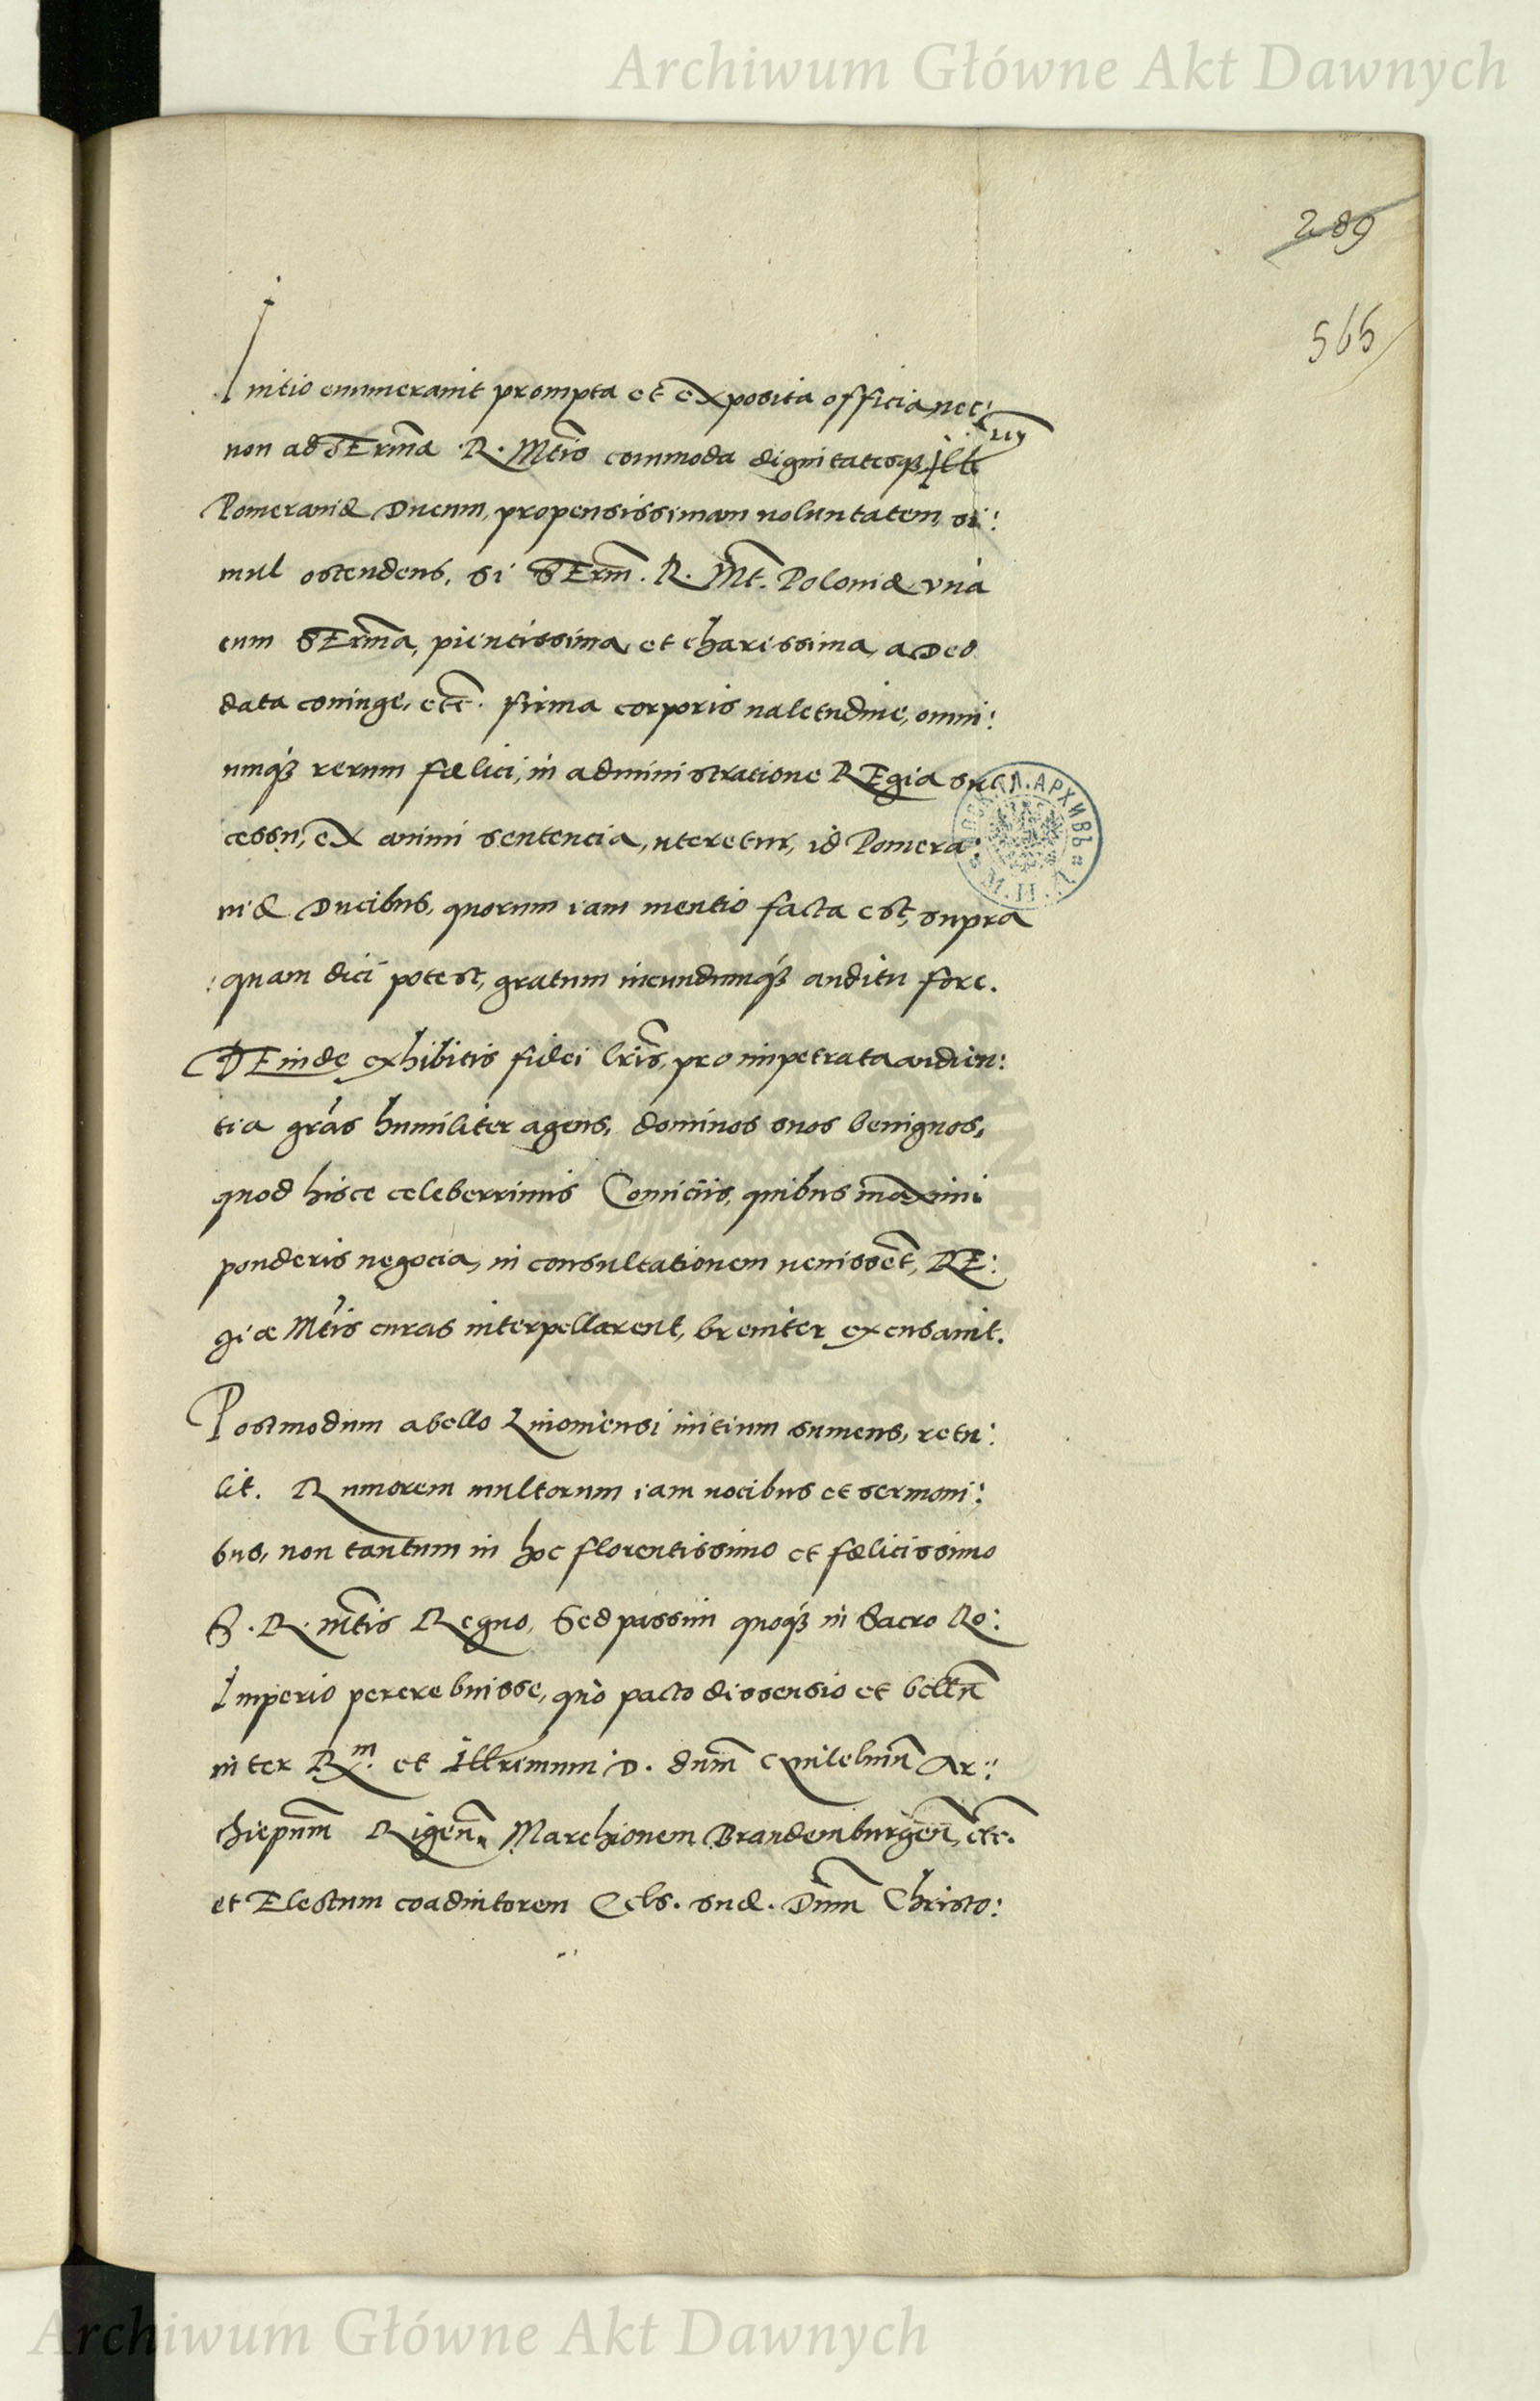 Archiwum Główne Akt Dawnych
289
565
Initio enumerauit prompta et exposita officia nec:
non ad SErma. R. Mtis commoda dignitatesq3 Ill
uu
Pomeraniæ Ducum, propensissimam uoluntatem, si:
mul ostendens, si SErm. R. Mt. Poloniæ vnà
cum SErma, pientissima, et charissima, a Deo
data coniuge, etc. firma corporis ualetudine, omni:
umq3 rerum fœlici, in administratione REgia suc:
cessu, ex animi sentencia, uteretur, id Pomera:
niæ Ducibus, quorum iam mentio facta est, supra
quam dici potest, gratum iucundumq3 auditu fore.
DEinde exhibitis fidei lris, pro impetrata audien:
tia gras humiliter agens, dominos suos benignos,
quod hisce celeberrimis Comiciis, quibus maximi
ponderis negocia, in consultationem uenissent, RE:
giæ Mtis curas interpellarent, breuiter excusauit.
Postmodum a bello Liuoniensi initium sumens, retu:
lit. Rumorem multorum iam uocibus et sermoni:
bus, non tantum in hoc florentissimo et fœlicissimo
S. R. Mtis Regno, Sed passim quoq3 in Sacro Ro:
Imperio percrebuisse, quò pacto dissensio et bellū
inter Rm. et Illrimum D. dnm Guilelmū Ar:
chiepum Rigen. Marchionem Brandemburgen, etc.
et Electum coadiutorem Ecls. suæ. Dnm Christo:
Archiwum Główne Akt Dawnych